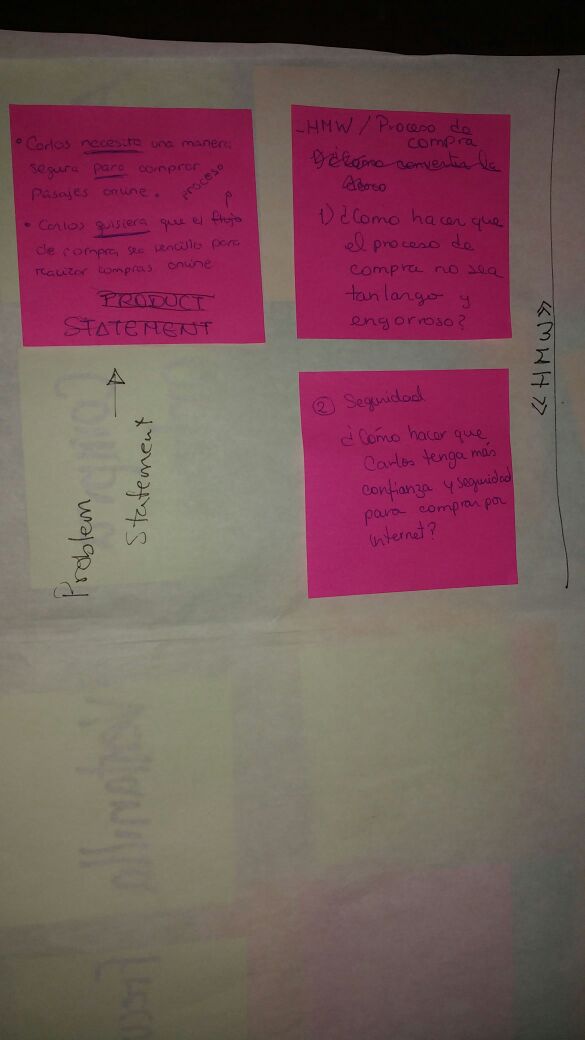 • Carlos necesita una manera
segura para comprar
pasajes online.
• Carlos quisiera que el flujo
proceso
de compra sea sencillo para
realizar compras online
PRODUCT
STATEMENT
Problem
Statement
→
- HMW / Proceso de
compra
1) ¿Cómo convertir la
1) ¿Como hacer que
el proceso de
compra no sea
tan largo y
engorroso?
② Seguridad
¿Cómo hacer que
Carlos tenga más
confianza y seguridad
para comprar por
internet?
«HMW»
Ventanilla